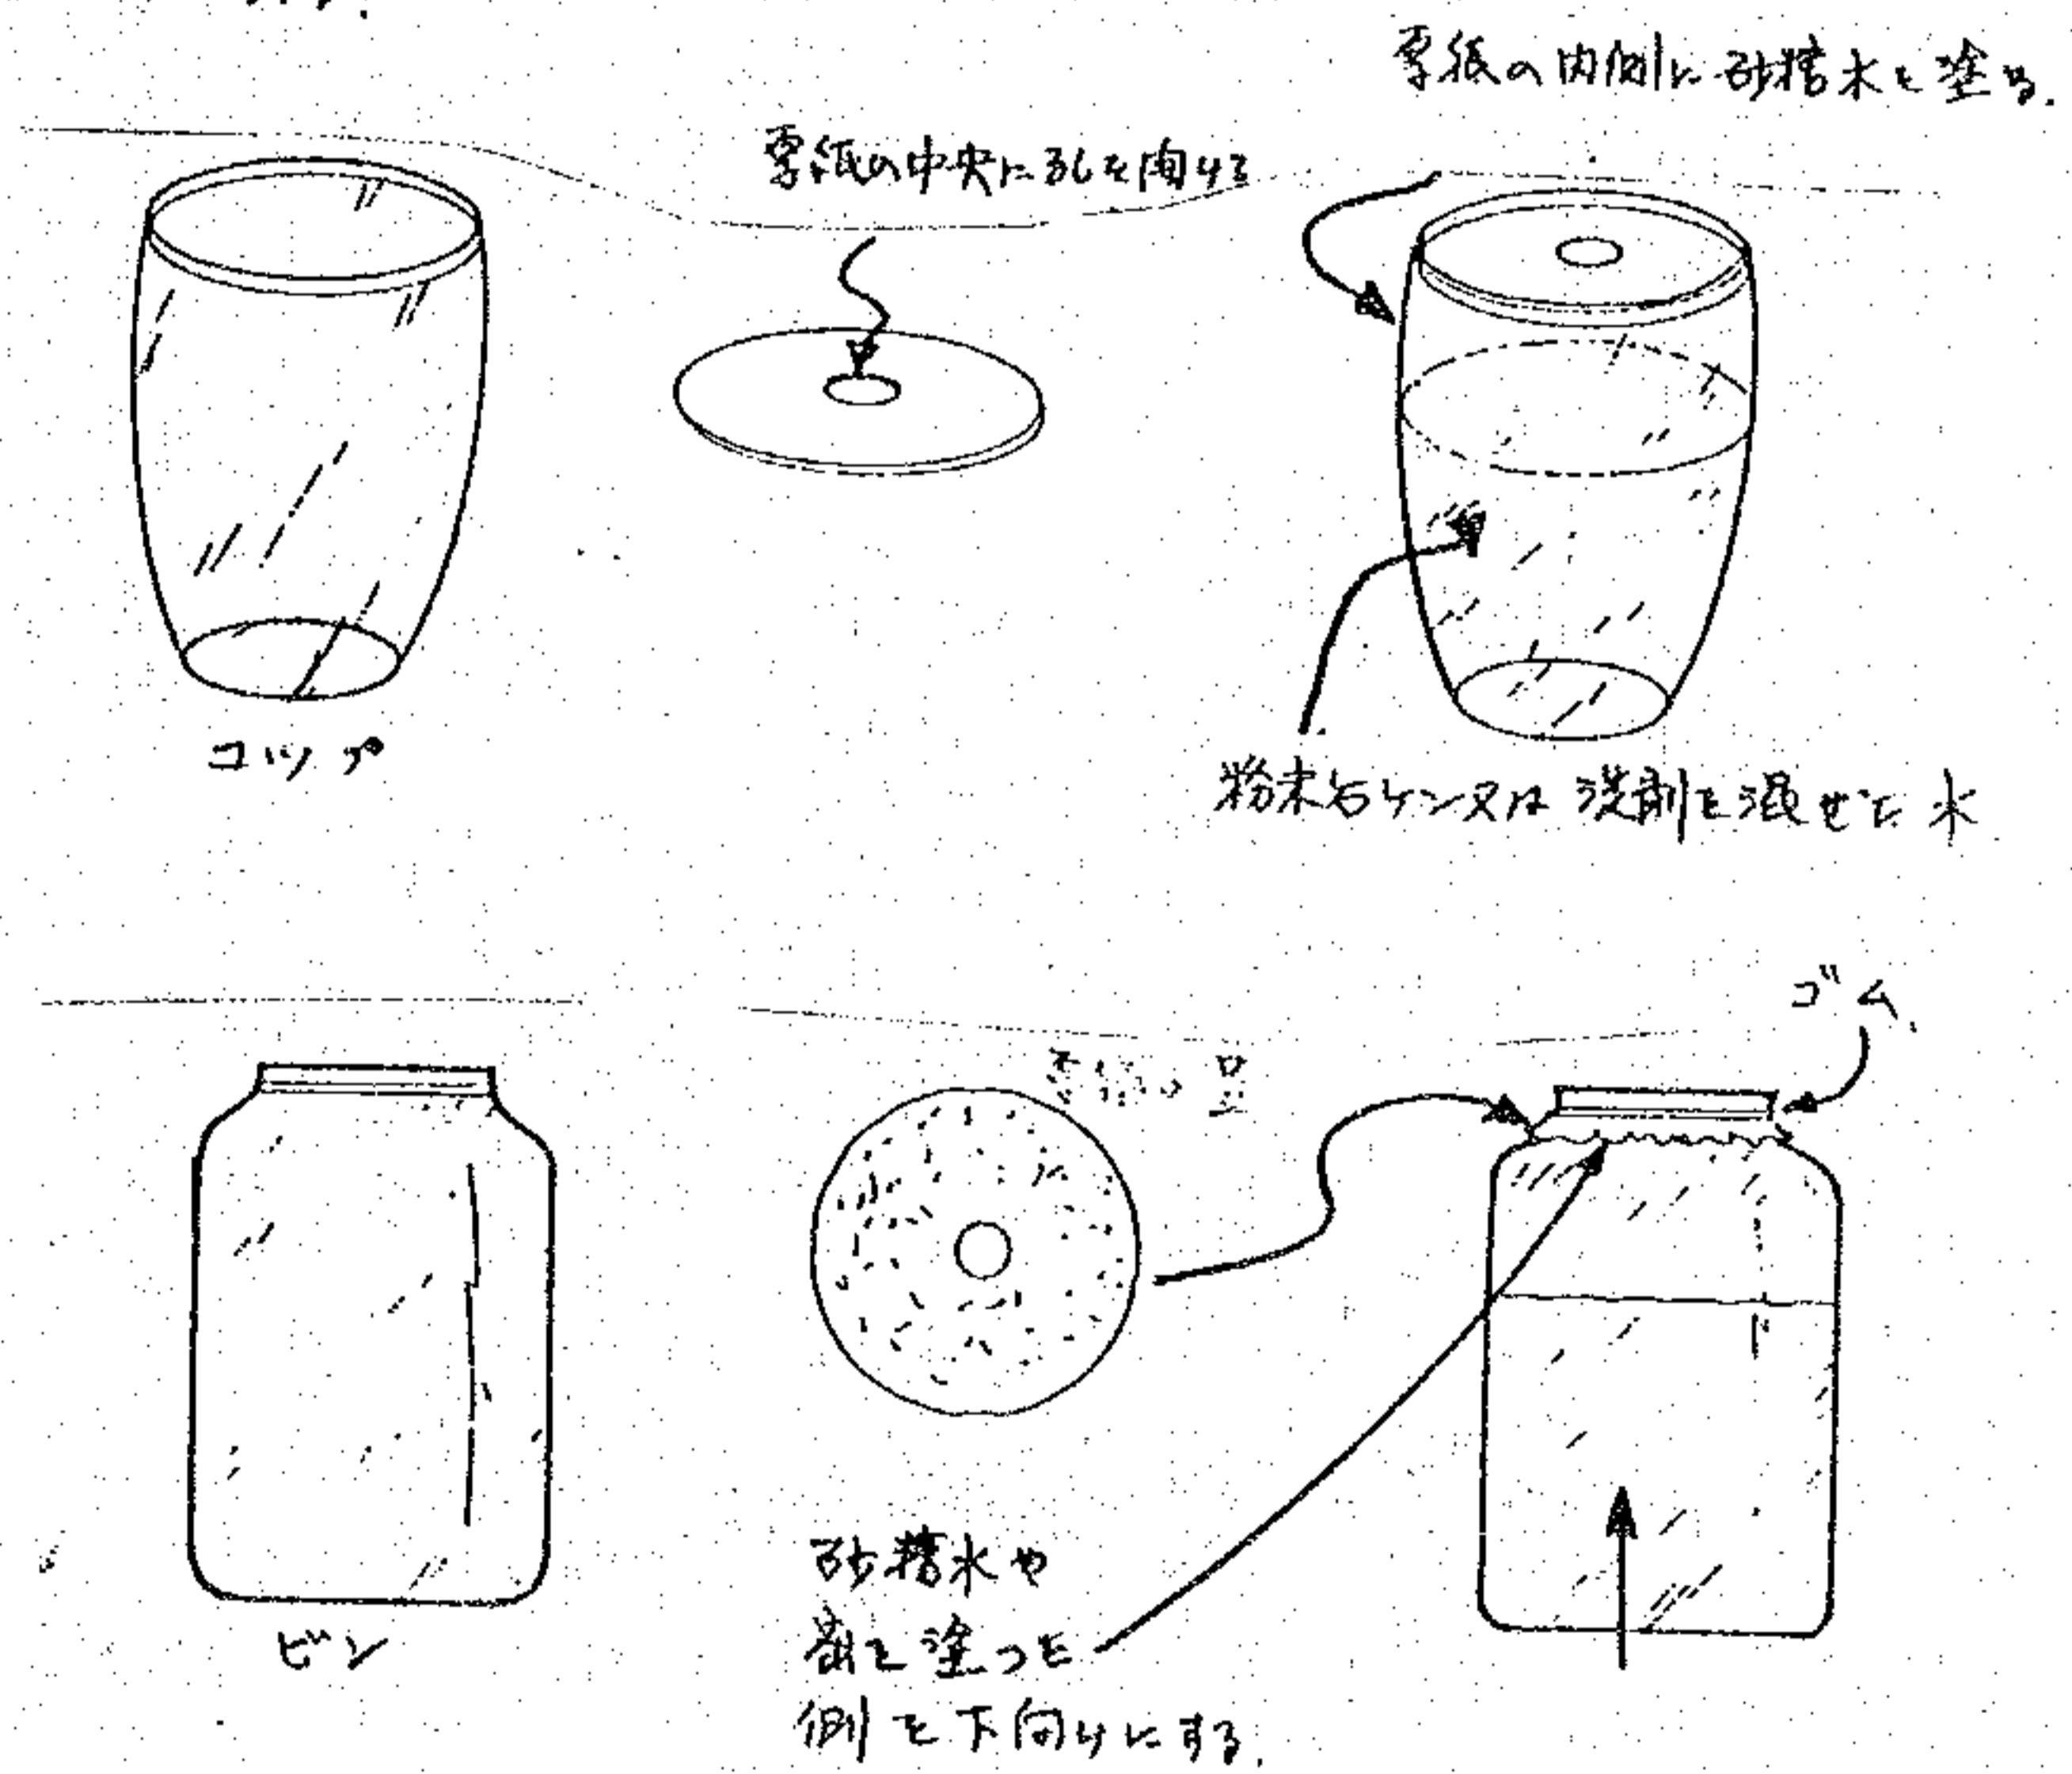 厚紙の内側に砂糖水を塗る.
厚紙の中央に孔を開ける
コップ
粉末石ケン又は洗剤を混ぜた水
ゴム.
砂糖水や
を塗った
側を下向けにする.
ビン